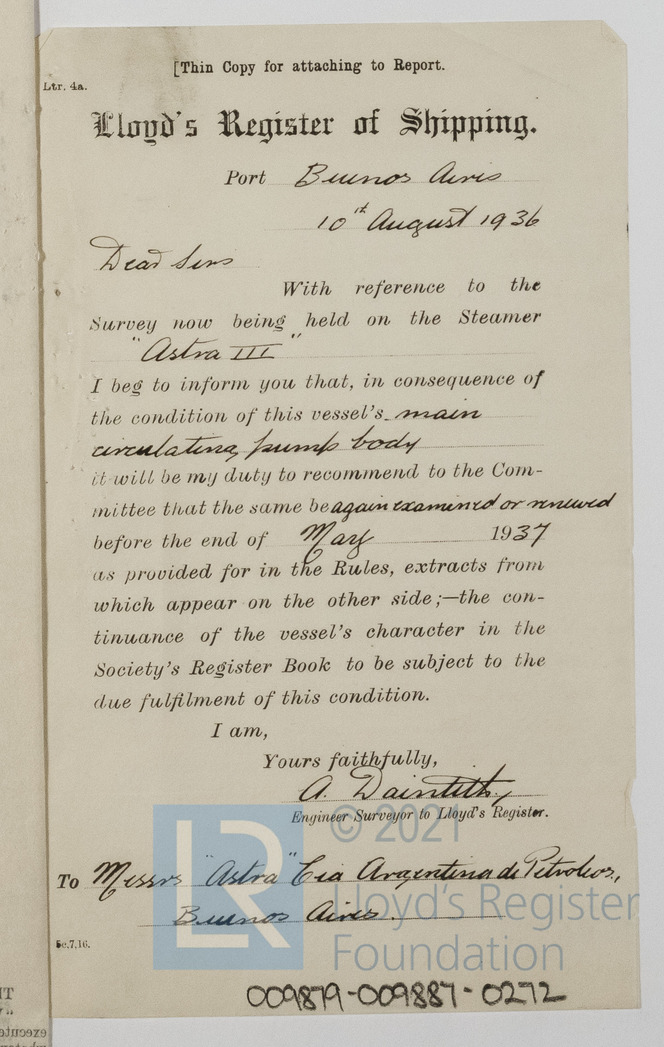 [Thin Copy for attaching to Report.
Ltr. 4a.
Lloyd's Register of Shipping.
Port Buenos Aires
10th August 1936
Dear Sirs
With reference to the
Survey now being held on the Steamer
"Astra III"
I beg to inform you that, in consequence of
the condition of this vessel's main
circulating pump body
it will be my duty to recommend to the Com-
mittee that the same be again examined or renewed
before the end of May 1937
as provided for in the Rules, extracts from
which appear on the other side;—the con-
tinuance of the vessel's character in the
Society's Register Book to be subject to the
due fulfilment of this condition.
I am,
Yours faithfully,
A. Dainteth,
Engineer Surveyor to Lloyd's Register.
To Messrs "Astra" Cia Argentina de Petroleos.,
Buenos Aires.
5c.7.16.
LR
© 2021
Lloyd's Register
Foundation
009879-009887-0272